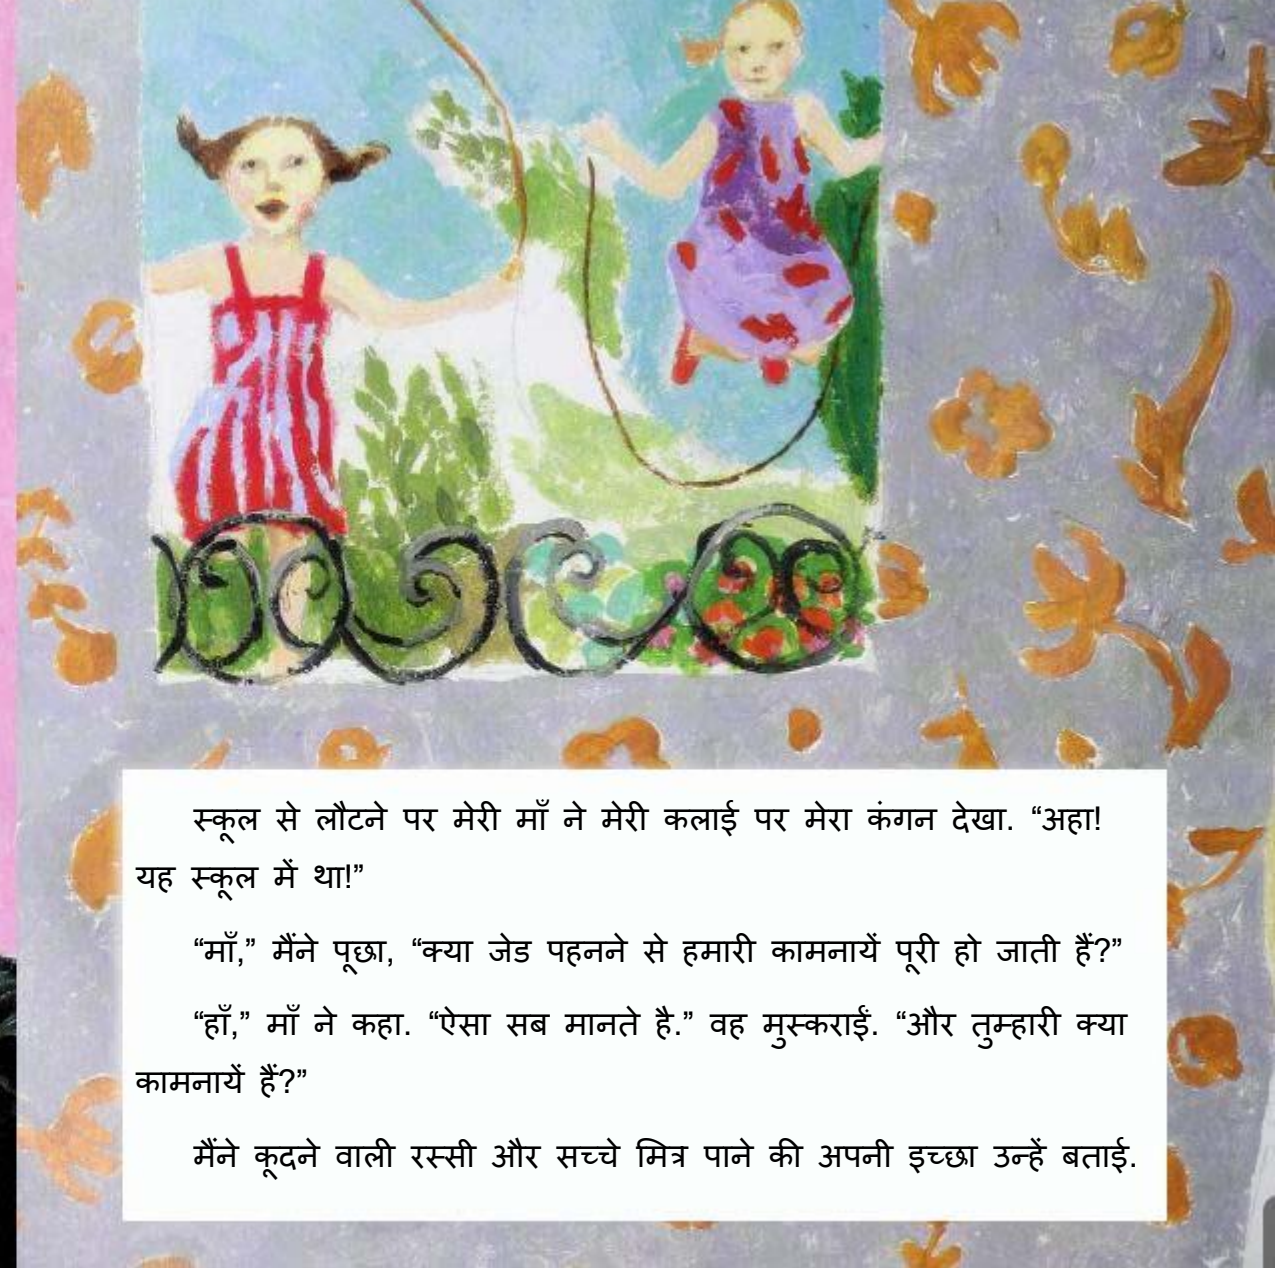 स्कूल से लौटने पर मेरी माँ ने मेरी कलाई पर मेरा कंगन देखा. “अहा!
यह स्कूल में था!”
“माँ,” मैंने पूछा, “क्या जेड पहनने से हमारी कामनायें पूरी हो जाती हैं?”
“हाँ,” माँ ने कहा. “ऐसा सब मानते है.” वह मुस्कराईं. “और तुम्हारी क्या
कामनायें हैं?”
मैंने कूदने वाली रस्सी और सच्चे मित्र पाने की अपनी इच्छा उन्हें बताई.